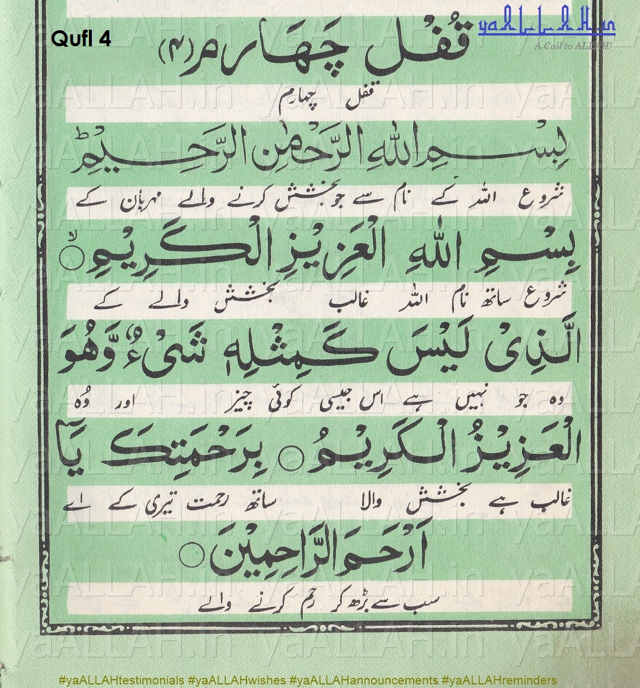 Qufl 4
yaALLAH.in
A Call to ALLAH!
قُفْل چَهَارم (۴)
قفل چہارم
بِسْمِ اللهِ الرَّحْمٰنِ الرَّحِيْمِ ط
شروع اللہ کے نام سے جو بخشش کرنے والے مہربان کے
بِسْمِ اللهِ الْعَزِيْزِ الْكَرِيْمِ ۙ○
شروع ساتھ نام اللہ غالب بخشش والے کے
الَّذِىْ لَيْسَ كَمِثْلِهٖ شَىْءٌ وَّهُوَ
وہ جو نہیں ہے اس جیسی کوئی چیز اور وُہ
الْعَزِيْزُ الْكَرِيْمُ ○ بِرَحْمَتِكَ يَآ
غالب ہے بخشش والا ساتھ رحمت تیری کے اے
اَرْحَمَ الرَّاحِمِيْنَ ○
سب سے بڑھ کر رحم کرنے والے
#yaALLAHtestimonials #yaALLAHwishes #yaALLAHannouncements #yaALLAHreminders